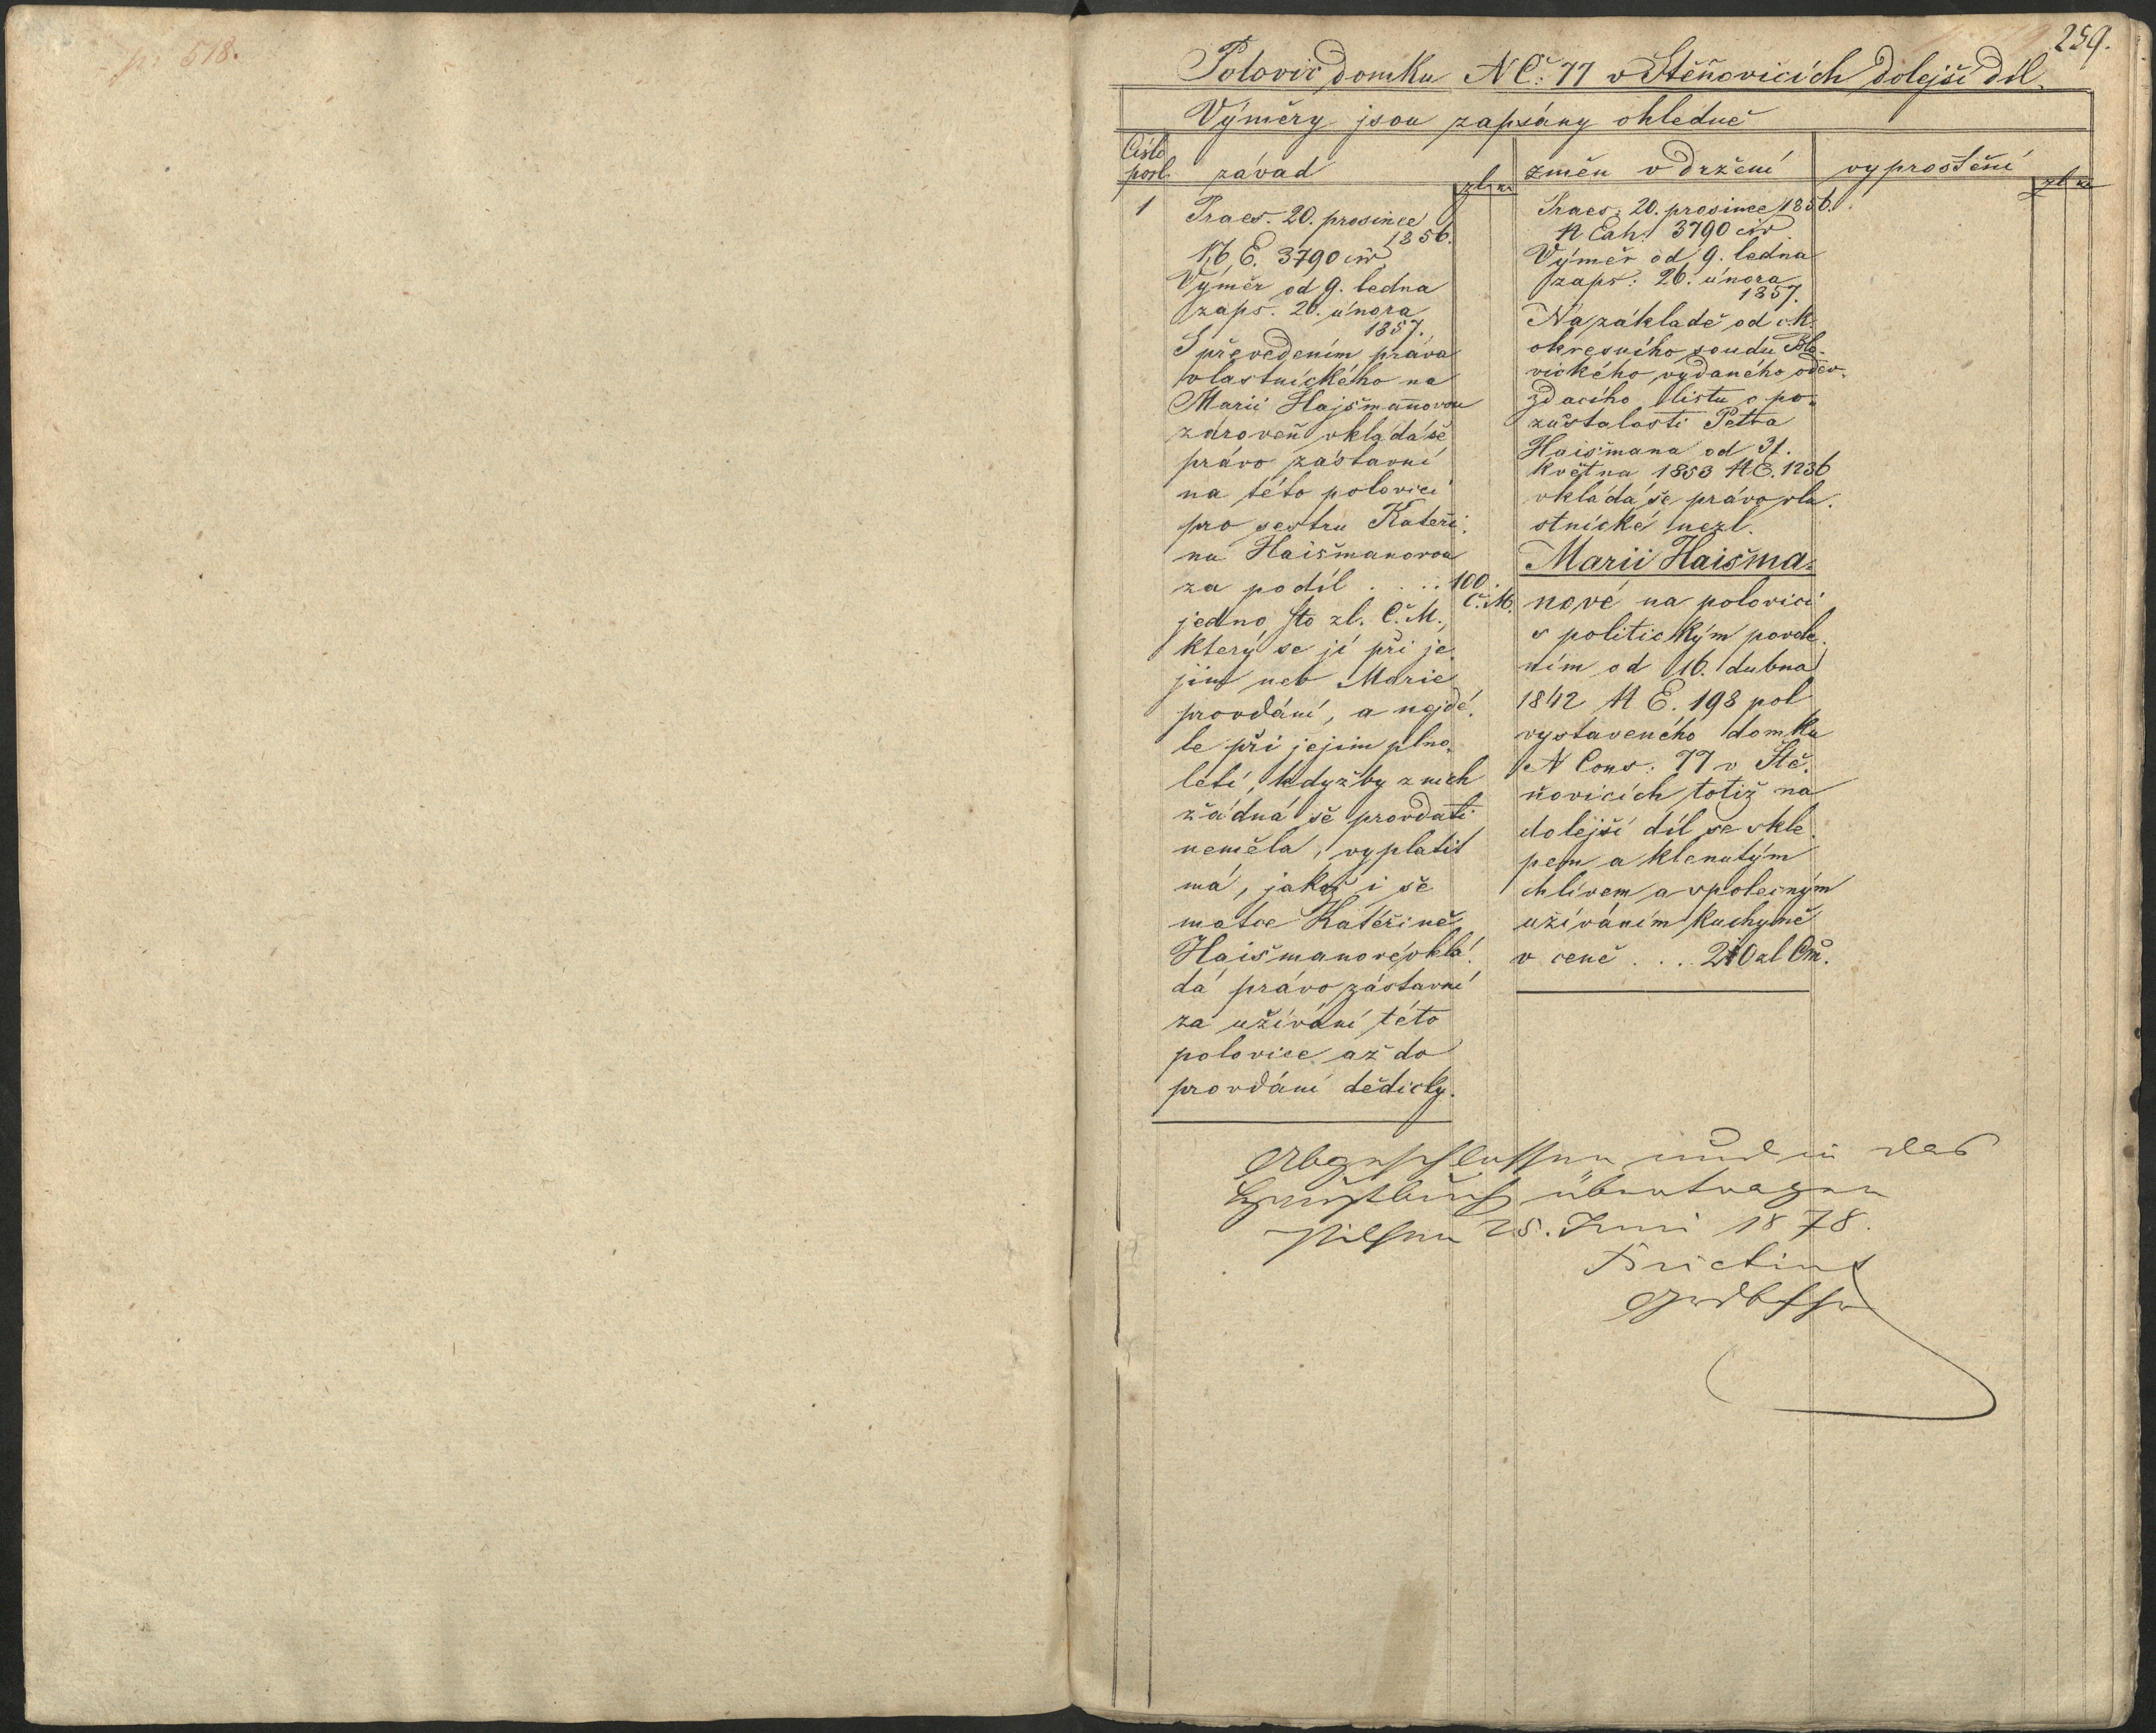 p. 518.
259.
Polovic domku N Č: 77 v Štěňovicích dolejší díl.
Výměry jsou zapsány ohledně
Číslo
posl.
závad
zl kr
změn v držení
vyproštění
zl kr
1
Praes. 20. prosince
1856.
N E. 3790 civ
Výměr od 9. ledna
zaps. 26. února
1857.
S převedením práva
vlastnického na
Marii Hajšmannovou
zároveň vkládá se
právo zástavní
na této polovici
pro sestru Kateři-
nu Haišmanovou
za podíl . . . . 100.
Č. M.
jedno sto zl. Č. M.,
který se jí při je-
jím neb Marie
provdání, a nejdé-
le při jejím plno-
letí, kdyžby z nich
žádná se provdati
neměla, vyplatit
má, jakož i se
matce Kateřině
Haišmanové vklá-
dá právo zástavní
za užívání této
polovice až do
provdání dědičky.
Praes: 20. prosince 1856.
N Exh: 3790 civ.
Výměr od 9. ledna
zaps: 26. února
1857.
Na základě od c. k.
okresního soudu Blo-
vického vydaného odev-
zdacího listu o po-
zůstalosti Petra
Haišmana od 31.
května 1853 N E. 1236
vkládá se právo vla-
stnické nezl.
Marii Haišma-
nové na polovici
s politickým povole-
ním od 16. dubna
1842 N E. 198 pol
vystaveného domku
N Cons: 77 v Ště-
ňovicích totiž na
dolejší díl se skle-
pem a klenutým
chlívem a společným
užíváním kuchyně
v ceně . . . 210 zl Čm.
Abgeschlossen und in das
Hauptbuch übertragen
Pilsen 25. Juni 1878.
Brictius